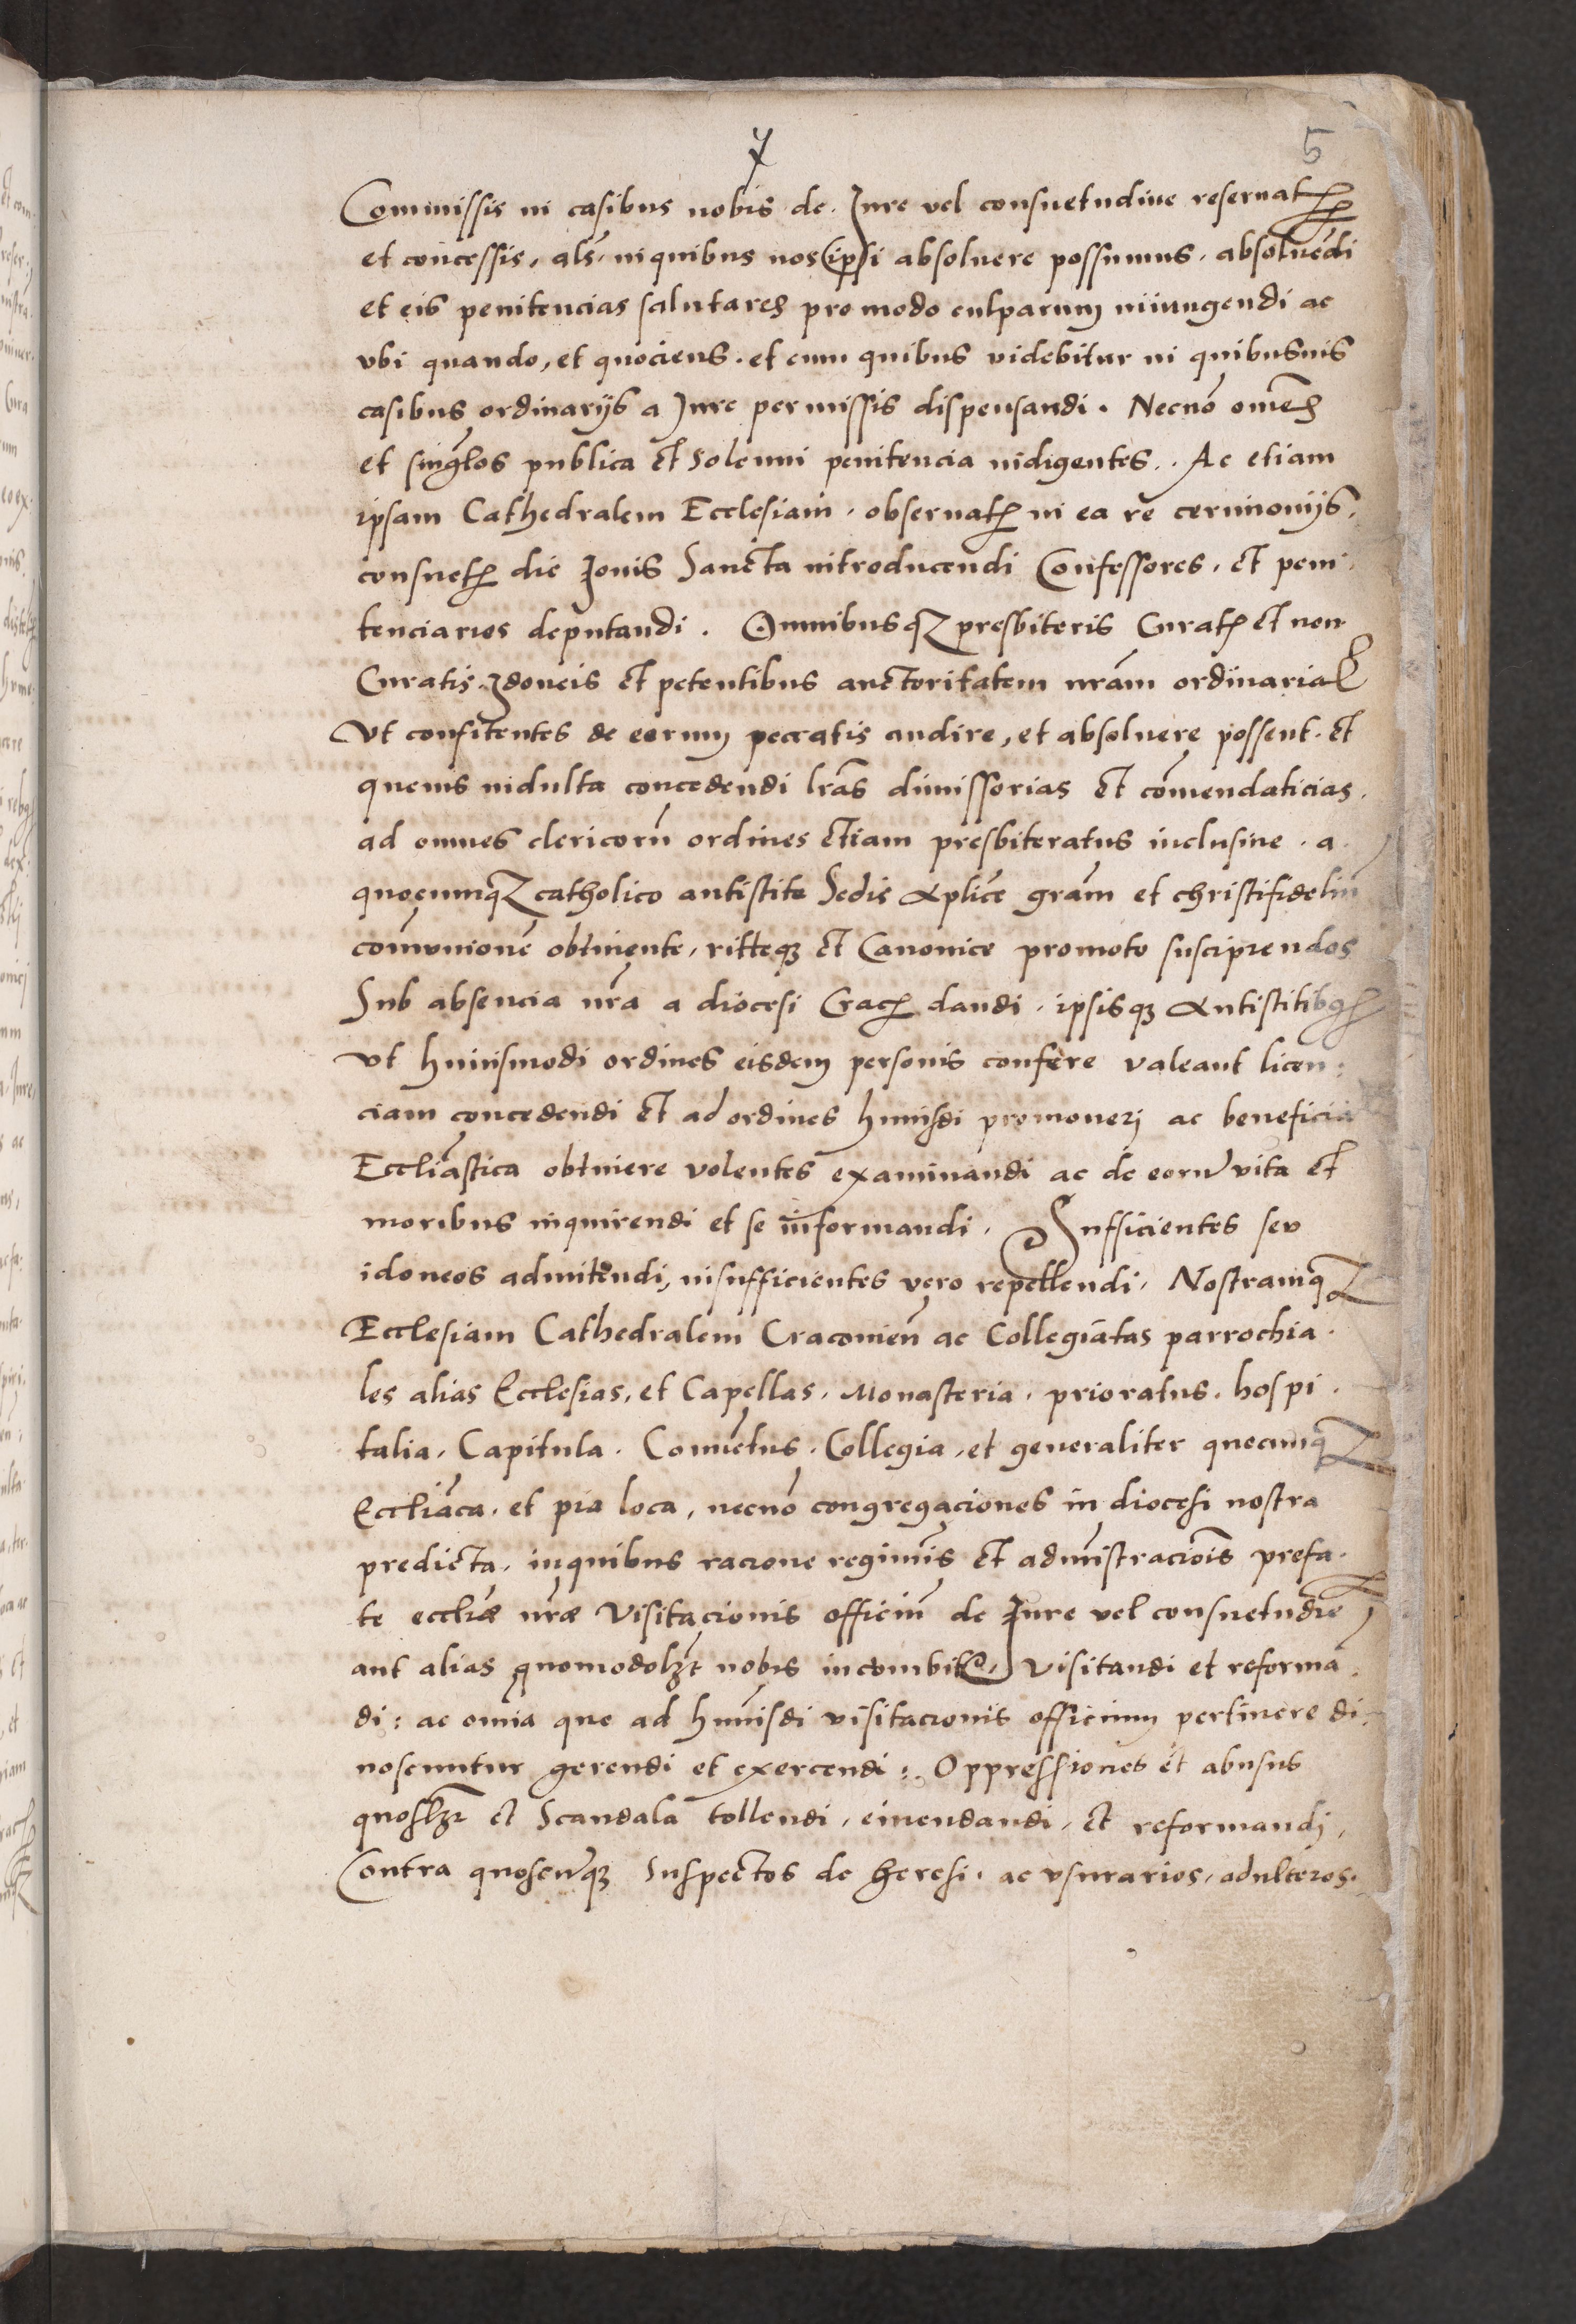 7
5
Commissis in casibus nobis de Jure vel consuetudine reseruatꝭ
et concessis, als̄ in quibus nos ipsi absoluere possumus, absoluēdi
et eis penitencias salutares pro modo culparum iniungendi ac
vbi quando, et quociens. et cum quibus videbitur in quibusuis
casibus ordinarijs a Jure permissis dispensandi. Necnō omēs
et singłos publica et solenni penitencia indigentes. Ac etiam
ipsam Cathedralem Ecclesiam, obseruatꝭ in ea re cerimonijs,
consuetꝭ die Jouis Sancta introducendi Confessores, et peni
tenciarios deputandi. Omnibusqȝ presbiteris Curatꝭ et non
Curatis Jdoneis et petentibus auctoritatem nrām ordinariā
Vt confitentes de eorum peccatis audire, et absoluere possent. et
queuis indulta concedendi lrās dimissorias et cōmendaticias,
ad omnes clericorū ordines etiam presbiteratus inclusiue. a
quocumqȝ catholico antistite Sedis Aplicē grām et christifideliū
comunionē obtinente, ritteqȝ et Canonice promoto suscipiendos
Sub absencia nrā a diocesi Cracꝭ dandi, ipsisqȝ Antistitibꝰ
vt huiusmodi ordines eisdem personis conferre valeant licen:
ciam concedendi et ad ordines huiusdi promoueri ac beneficia
Eccliāstica obtinere volentes examinandi ac de eorū vita et
moribus inquirendi et se informandi. Sufficientes seu
idoneos admittendi, insufficientes vero repellendi, Nostramqȝ
Ecclesiam Cathedralem Cracouien̄ ac Collegiatas parrochia
les alias Ecclesias, et Capellas, Monasteria, prioratus, hospi
talia, Capitula, Conuētus, Collegia, et generaliter quecumqȝ
Eccliāca, et pia loca, necnō congregaciones in diocesi nostra
predicta, in quibus racione regiminīs et administraciōis prefa
te eccliæ nrāe Visitacionis officiū de Jure vel consuetudīe
aut alias quomodolȝt nobis incombit, visitandi et reformā
di: ac omīa que ad huiusdi visitacionis officium pertinere di
noscuntur gerendi et exercendi: Oppressiones et abusus
quoslȝt et Scandala tollendi, emendandi, et reformandi,
Contra quoscūqȝ Suspectos de heresi, ac vsurarios, adulteros.